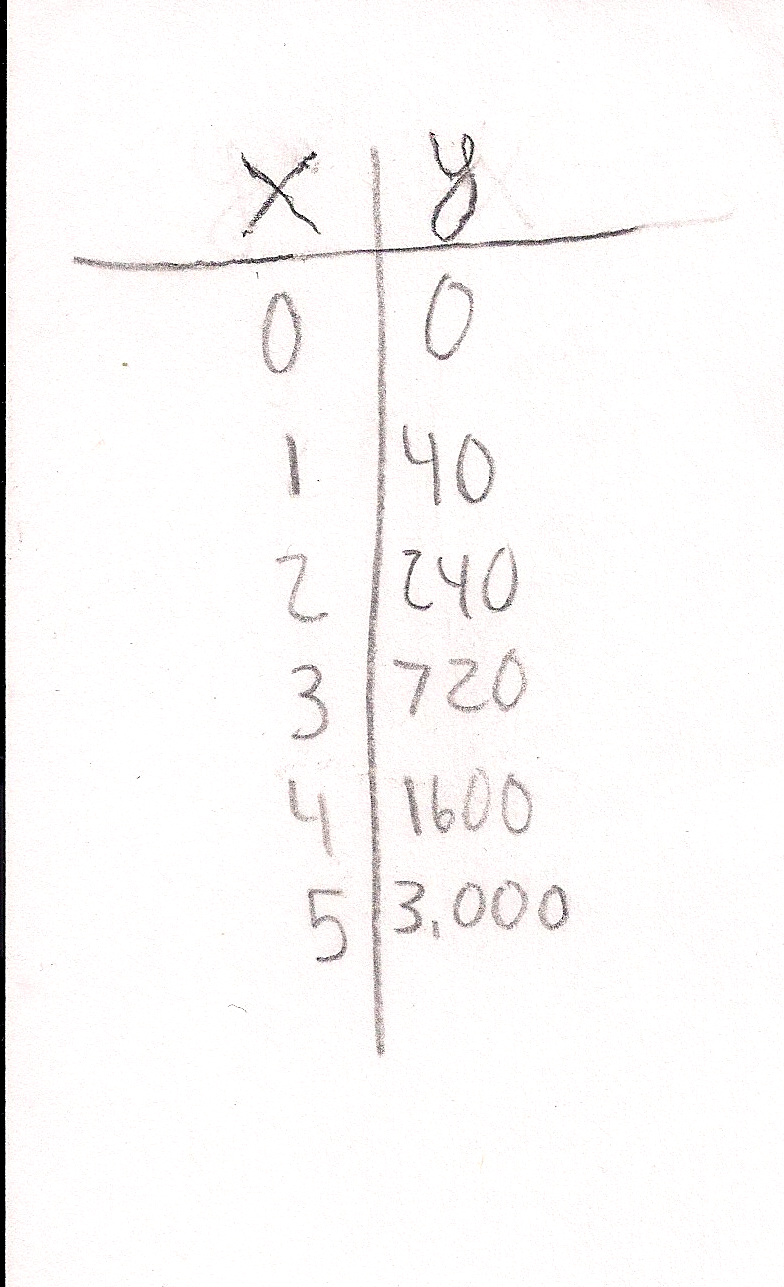 x y
0 0
1 40
2 240
3 720
4 1600
5 3,000